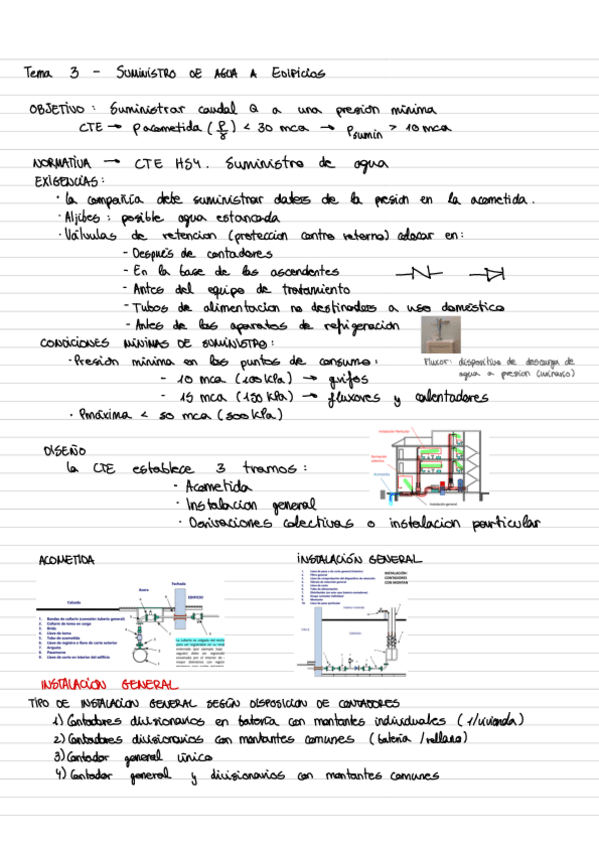 Tema 3 - SUMINISTRO DE AGUA A EDIFICIOS
OBJETIVO: Suministrar caudal Q a una presion minima
CTE → Pacometida (P/γ) < 30 mca → Psumin > 10 mca
NORMATIVA → CTE HS4. Suministro de agua
EXIGENCIAS:
· La compañia debe suministrar datos de la presion en la acometida.
· Aljibes: posible agua estancada
· Válvulas de retencion (proteccion contra retorno) colocar en:
- Después de contadores
- En la base de los ascendentes
- Antes del equipo de tratamiento
- Tubos de alimentacion no destinados a uso doméstico
- Antes de los aparatos de refigeracion
CONDICIONES MINIMAS DE SUMINISTRO:
· Presion minima en los puntos de consumo:
- 10 mca (100 kPa) → grifos
- 15 mca (150 kPa) → fluxores y calentadores
· Pmáxima < 50 mca (500 kPa)
Fluxor: dispositivo de descarga de
agua a presion (urinario)
DISEÑO
la CTE establece 3 tramos:
· Acometida
· Instalacion general
· Derivaciones colectivas o instalacion particular
Instalación Particular
Instalación general
ACOMETIDA
Fachada
Acera
EDIFICIO
Calzada
1. Bandas de collarín (conexión tubería general)
2. Collarín de toma en carga
3. Brida
4. Llave de toma
5. Tubo de acometida
6. Llave de registro o llave de corte exterior
7. Arqueta
8. Pasamuros
9. Llave de corte interior del edificio
INSTALACIÓN GENERAL
2. Filtro general
INSTALACIÓN
CONTADORES
CON MONTAN
INSTALACION GENERAL
TIPO DE INSTALACION GENERAL SEGÚN DISPOSICION DE CONTADORES
1) Contadores divisionarios en batería con montantes individuales (1/vivienda)
2) Contadores divisionarios con montantes comunes (batería/rellano)
3) Contador general único
4) Contador general y divisionarios con montantes comunes